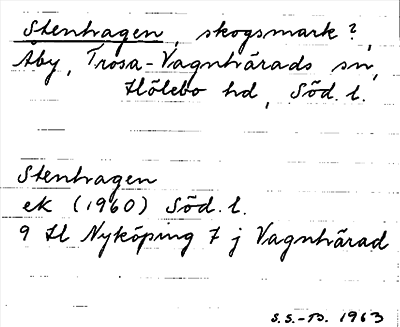 Stenhagen, skogsmark?,
Åby, Trosa-Vagnhärads sn,
Hölebo hd, Söd. l.
Stenhagen
ek (1960) Söd. l.
9 H Nyköping 7 j Vagnhärad
S.S.-B. 1963